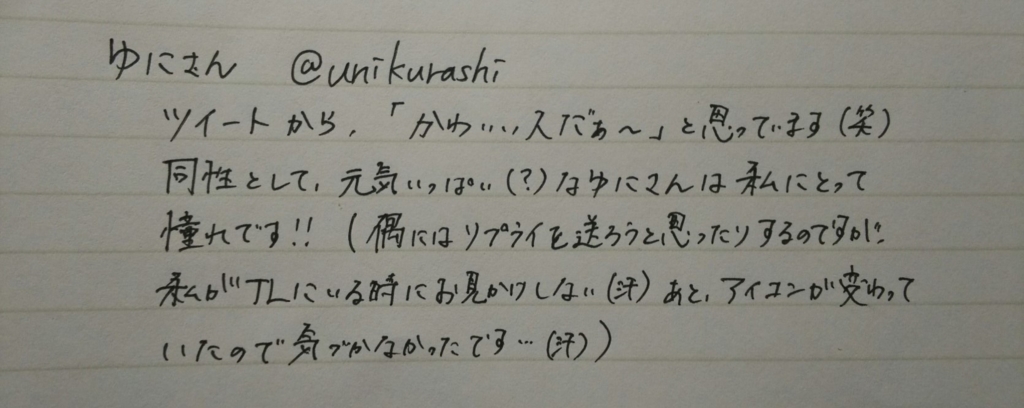 ゆにさん @unikurashi
ツイートから、「かわいい人だぁ〜」と思っています(笑)
同性として、元気いっぱい(?)なゆにさんは私にとって
憧れです!!(偶にはリプライを送ろうと思ったりするのですが、
私がTLにいる時にお見かけしない(汗)あと、アイコンが変わって
いたので気づかなかったです…(汗))